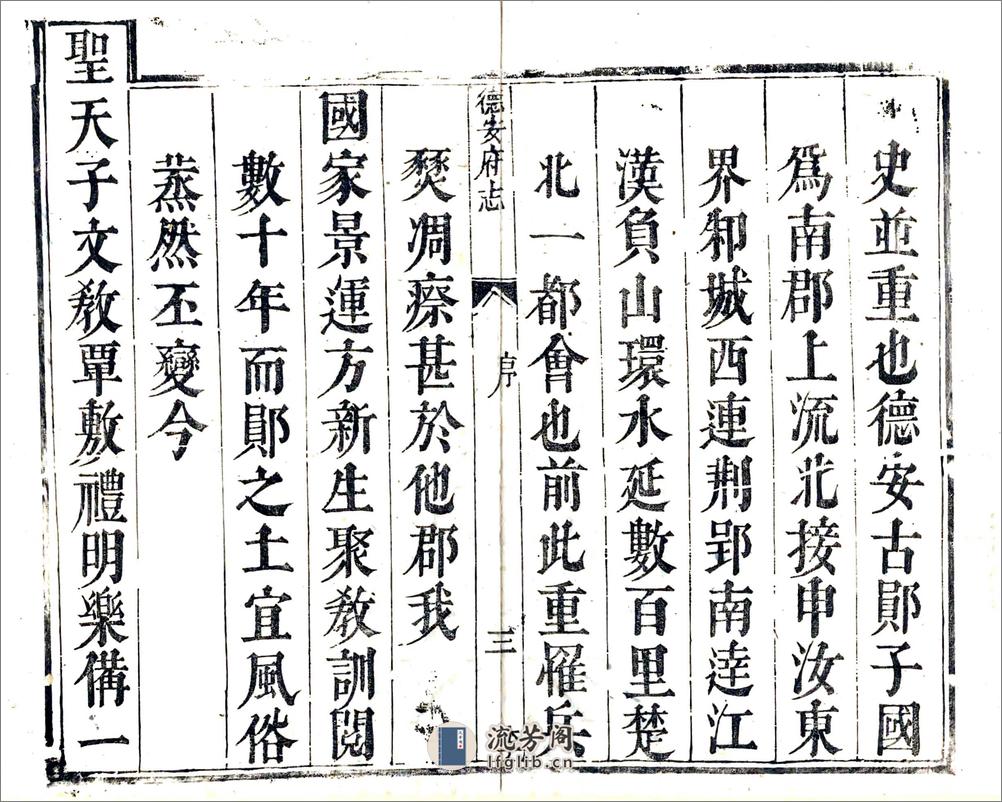 史並重也德安古鄖子國
爲南郡上流北接申汝東
界邾城西連荆郢南逹江
漢負山環水延數百里楚
北一都會也前此重罹兵
德安府志
序
三
燹凋瘵甚於他郡我
國家景運方新生聚敎訓閱
數十年而鄖之土宜風俗
蒸然丕變今
聖天子文敎覃敷禮明樂備一
流芳阁
lfglib.cn